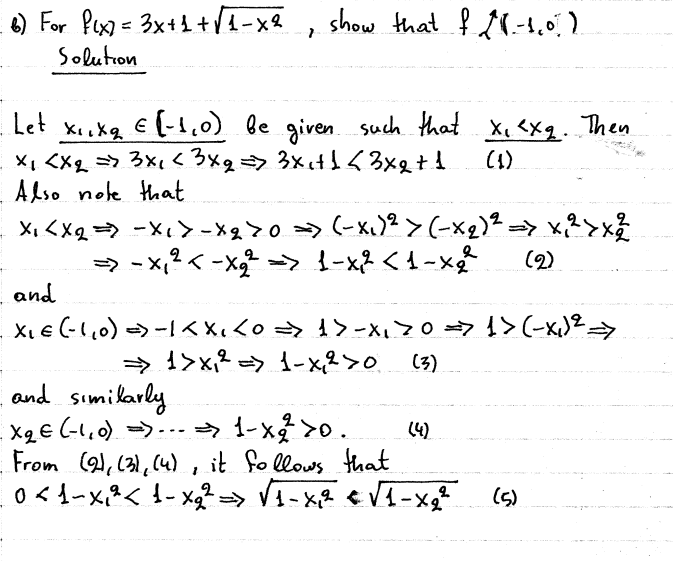 b) For f(x) = 3x+1+√(1-x²) , show that f ↗ (-1,0)
Solution
Let x₁,x₂ ∈ (-1,0) be given such that x₁<x₂. Then
x₁<x₂ ⇒ 3x₁<3x₂ ⇒ 3x₁+1<3x₂+1 (1)
Also note that
x₁<x₂ ⇒ -x₁>-x₂>0 ⇒ (-x₁)²>(-x₂)² ⇒ x₁²>x₂²
⇒ -x₁²<-x₂² ⇒ 1-x₁²<1-x₂² (2)
and
x₁∈(-1,0) ⇒ -1<x₁<0 ⇒ 1>-x₁>0 ⇒ 1>(-x₁)² ⇒
⇒ 1>x₁² ⇒ 1-x₁²>0 (3)
and similarly
x₂∈(-1,0) ⇒ --- ⇒ 1-x₂²>0. (4)
From (2),(3),(4) , it follows that
0<1-x₁²<1-x₂² ⇒ √(1-x₁²) < √(1-x₂²) (5)